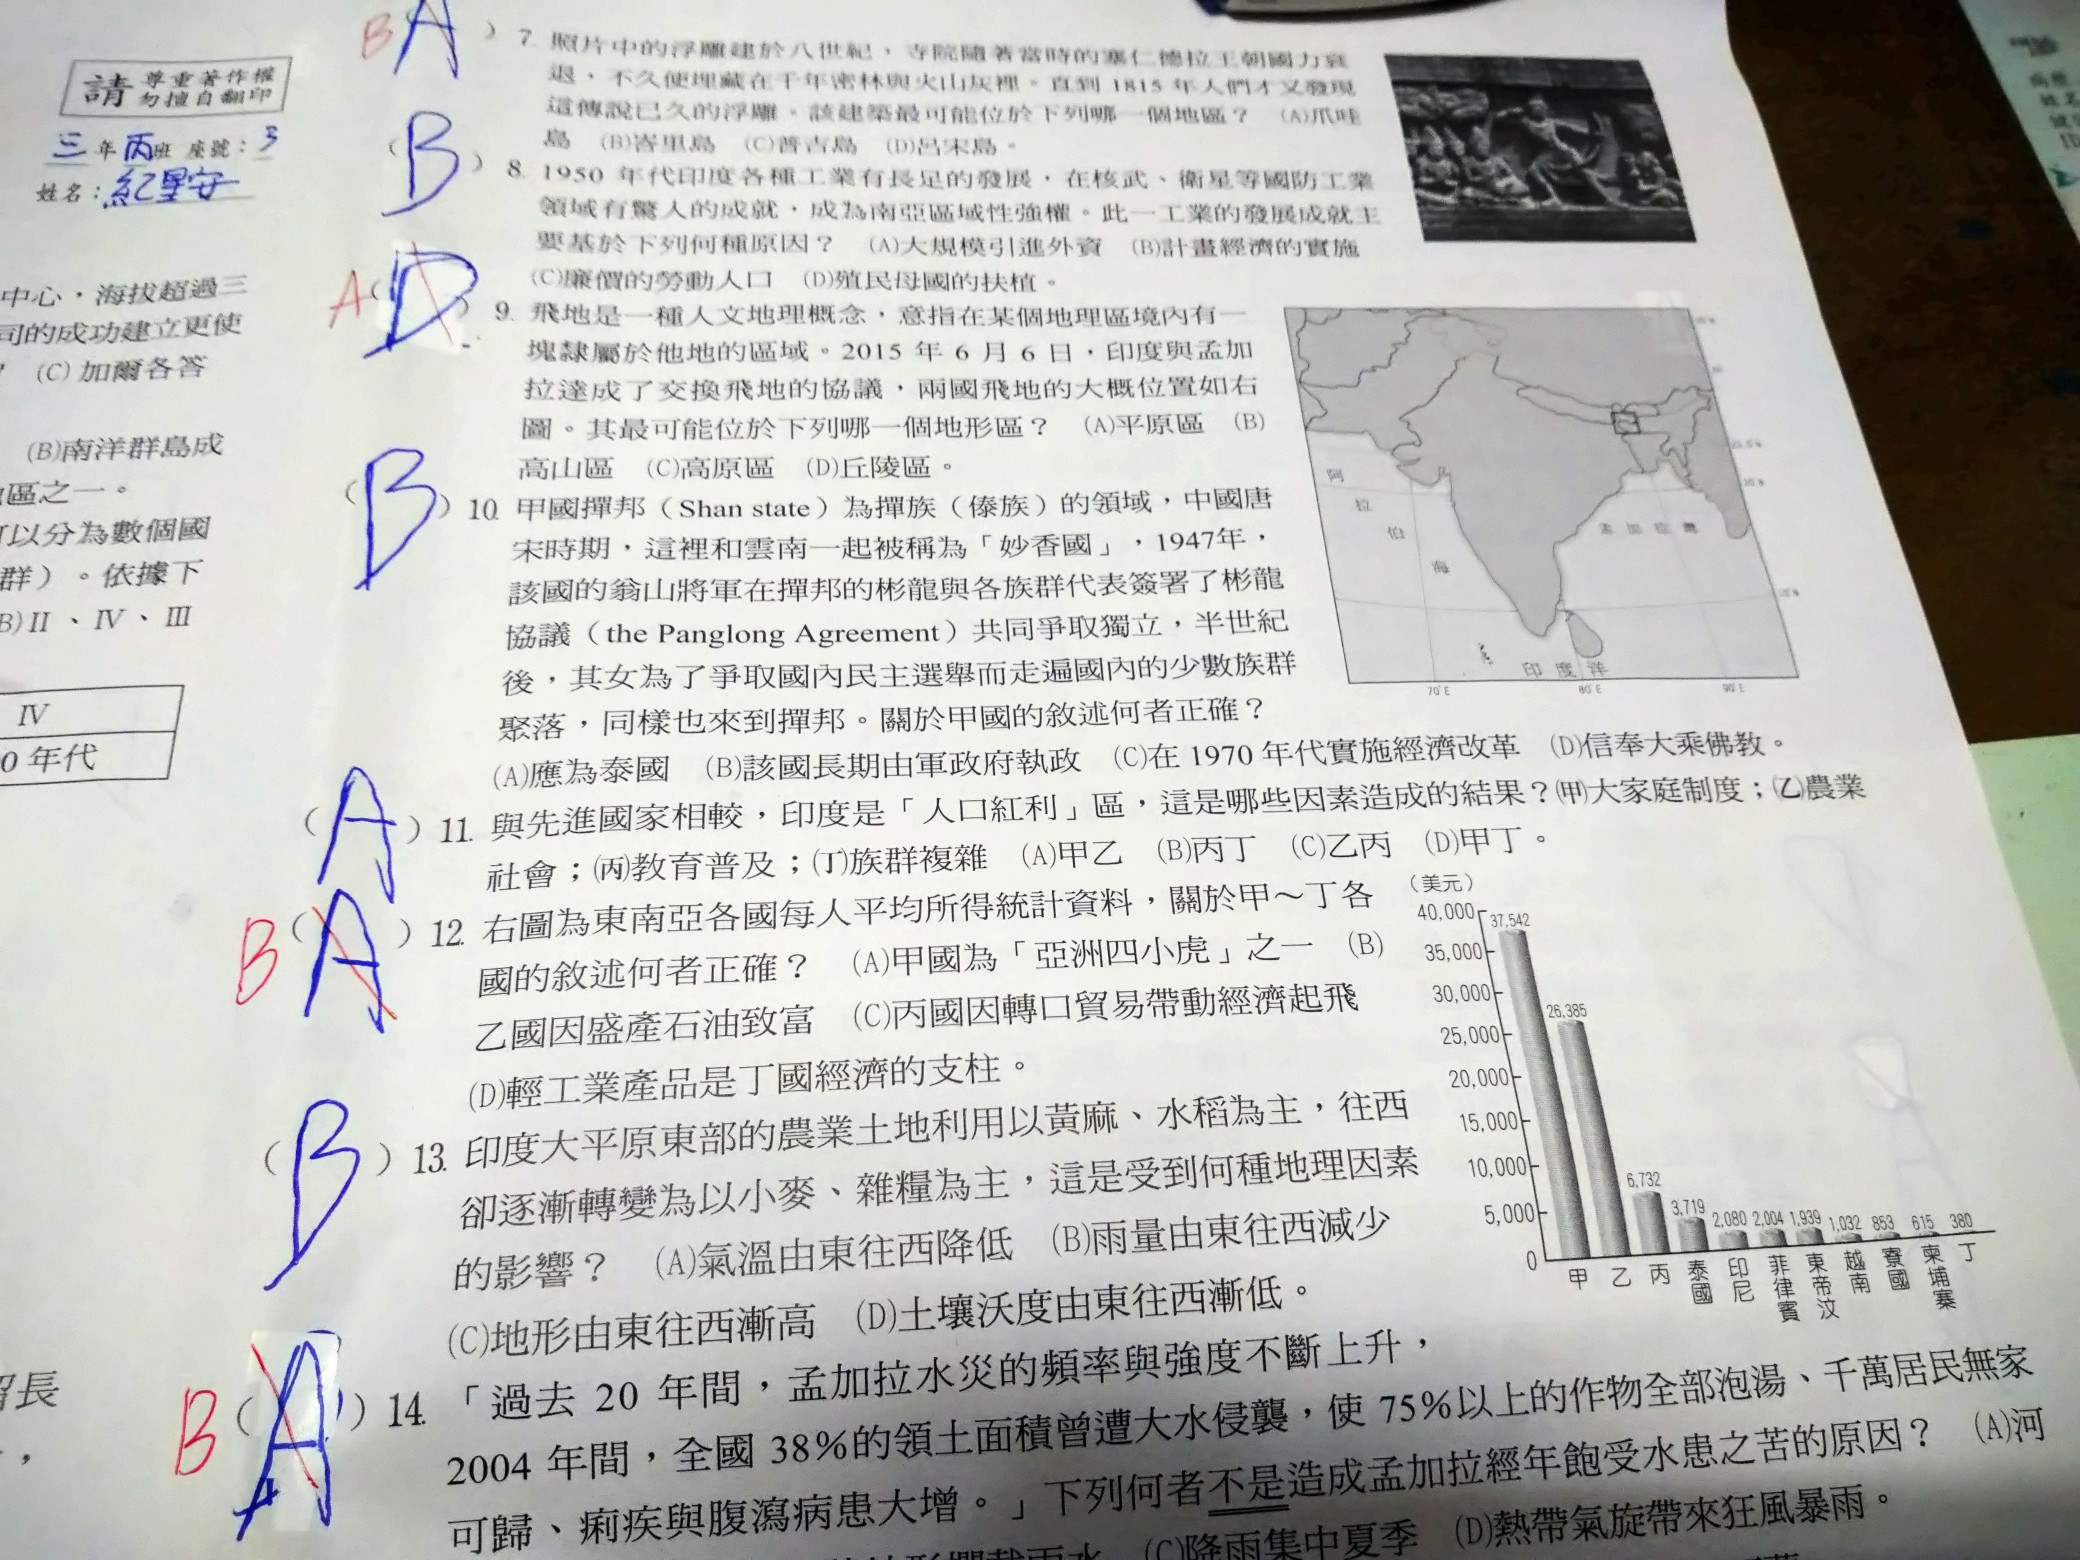 請 尊重著作權
勿擅自翻印
三年丙班 座號：3
姓名：紀星安
中心，海拔超過三
司的成功建立更使
(C)加爾各答
(B)南洋群島成
區之一。
可以分為數個國
群）。依據下
B)II、IV、III
IV
0 年代
留長
B A ）7. 照片中的浮雕建於八世紀，寺院隨著當時的塞仁德拉王朝國力衰
退，不久便埋藏在千年密林與火山灰裡。直到 1815 年人們才又發現
這傳說已久的浮雕。該建築最可能位於下列哪一個地區？ (A)爪哇
島 (B)峇里島 (C)普吉島 (D)呂宋島。
（B）8. 1950 年代印度各種工業有長足的發展，在核武、衛星等國防工業
領域有驚人的成就，成為南亞區域性強權。此一工業的發展成就主
要基於下列何種原因？ (A)大規模引進外資 (B)計畫經濟的實施
(C)廉價的勞動人口 (D)殖民母國的扶植。
A（D）9. 飛地是一種人文地理概念，意指在某個地理區境內有一
塊隸屬於他地的區域。2015 年 6 月 6 日，印度與孟加
拉達成了交換飛地的協議，兩國飛地的大概位置如右
圖。其最可能位於下列哪一個地形區？ (A)平原區 (B)
高山區 (C)高原區 (D)丘陵區。
阿拉伯海
孟加拉灣
印度洋
70°E 80°E 90°E
（B）10. 甲國撣邦（Shan state）為撣族（傣族）的領域，中國唐
宋時期，這裡和雲南一起被稱為「妙香國」，1947年，
該國的翁山將軍在撣邦的彬龍與各族群代表簽署了彬龍
協議（the Panglong Agreement）共同爭取獨立，半世紀
後，其女為了爭取國內民主選舉而走遍國內的少數族群
聚落，同樣也來到撣邦。關於甲國的敘述何者正確？
(A)應為泰國 (B)該國長期由軍政府執政 (C)在 1970 年代實施經濟改革 (D)信奉大乘佛教。
（A）11. 與先進國家相較，印度是「人口紅利」區，這是哪些因素造成的結果？(甲)大家庭制度；(乙)農業
社會；(丙)教育普及；(丁)族群複雜 (A)甲乙 (B)丙丁 (C)乙丙 (D)甲丁。
B（A）12. 右圖為東南亞各國每人平均所得統計資料，關於甲～丁各
國的敘述何者正確？ (A)甲國為「亞洲四小虎」之一 (B)
乙國因盛產石油致富 (C)丙國因轉口貿易帶動經濟起飛
(D)輕工業產品是丁國經濟的支柱。
（美元）
40,000
35,000
30,000
25,000
20,000
15,000
10,000
5,000
0
37,542 26,385 6,732 3,719 2,080 2,004 1,939 1,032 853 615 380
甲 乙 丙 泰國 印尼 菲律賓 東帝汶 越南 寮國 柬埔寨 丁
（B）13. 印度大平原東部的農業土地利用以黃麻、水稻為主，往西
卻逐漸轉變為以小麥、雜糧為主，這是受到何種地理因素
的影響？ (A)氣溫由東往西降低 (B)雨量由東往西減少
(C)地形由東往西漸高 (D)土壤沃度由東往西漸低。
B（A）14. 「過去 20 年間，孟加拉水災的頻率與強度不斷上升，
2004 年間，全國 38%的領土面積曾遭大水侵襲，使 75%以上的作物全部泡湯、千萬居民無家
可歸、痢疾與腹瀉病患大增。」下列何者不是造成孟加拉經年飽受水患之苦的原因？ (A)河
(C)降雨集中夏季 (D)熱帶氣旋帶來狂風暴雨。